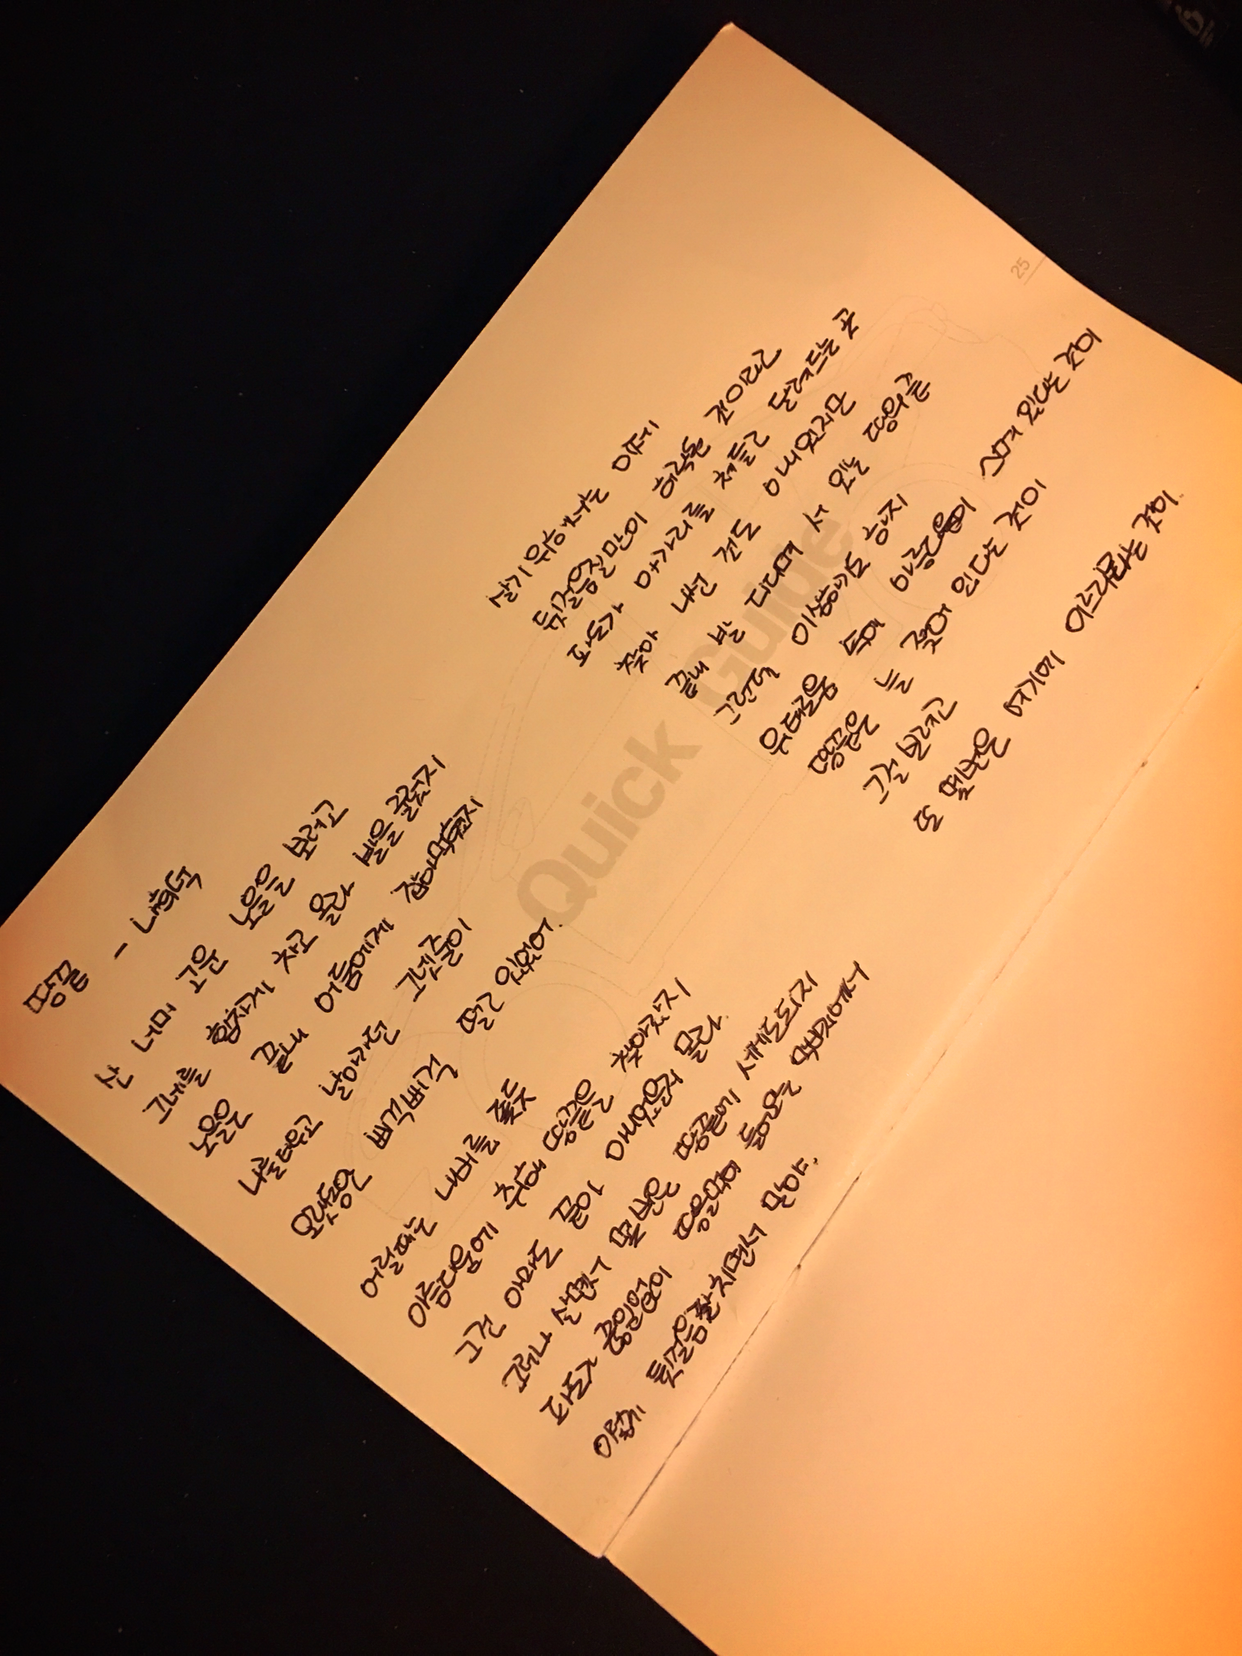 땅끝 - 나희덕
산 너머 고운 노을을 보려고
그네를 힘차게 차고 올라 발을 굴렀지
노을은 끝내 어둠에게 잡아먹혔지
나를 태우고 날아가던 그넷줄이
오랫동안 삐걱삐걱 떨고 있었어.
어릴때는 나비를 좇듯
아름다움에 취해 땅끝을 찾아갔지
그건 아마도 끝이 아니었을지 몰라.
그러나 살면서 몇번은 땅끝에 서게도되지
파도가 끊임없이 땅을먹어 들어오는 막바지에서
이렇게 뒷걸음질치면서 말야.
살기 위해서는 이제
뒷걸음질만이 허락된 것이라고
파도가 아가리를 쳐들고 달려드는 곳
찾아 나선 것도 아니었지만
끝내 발 디디며 서 있는 땅의 끝
그런데 이상하기도 하지
위태로움 속에 아름다움이 스며 있다는 것이
땅끝은 늘 젖어 있다는 것이
그걸 보려고
또 몇번은 여기에 이르리라는 것이.
Quick Guide
25